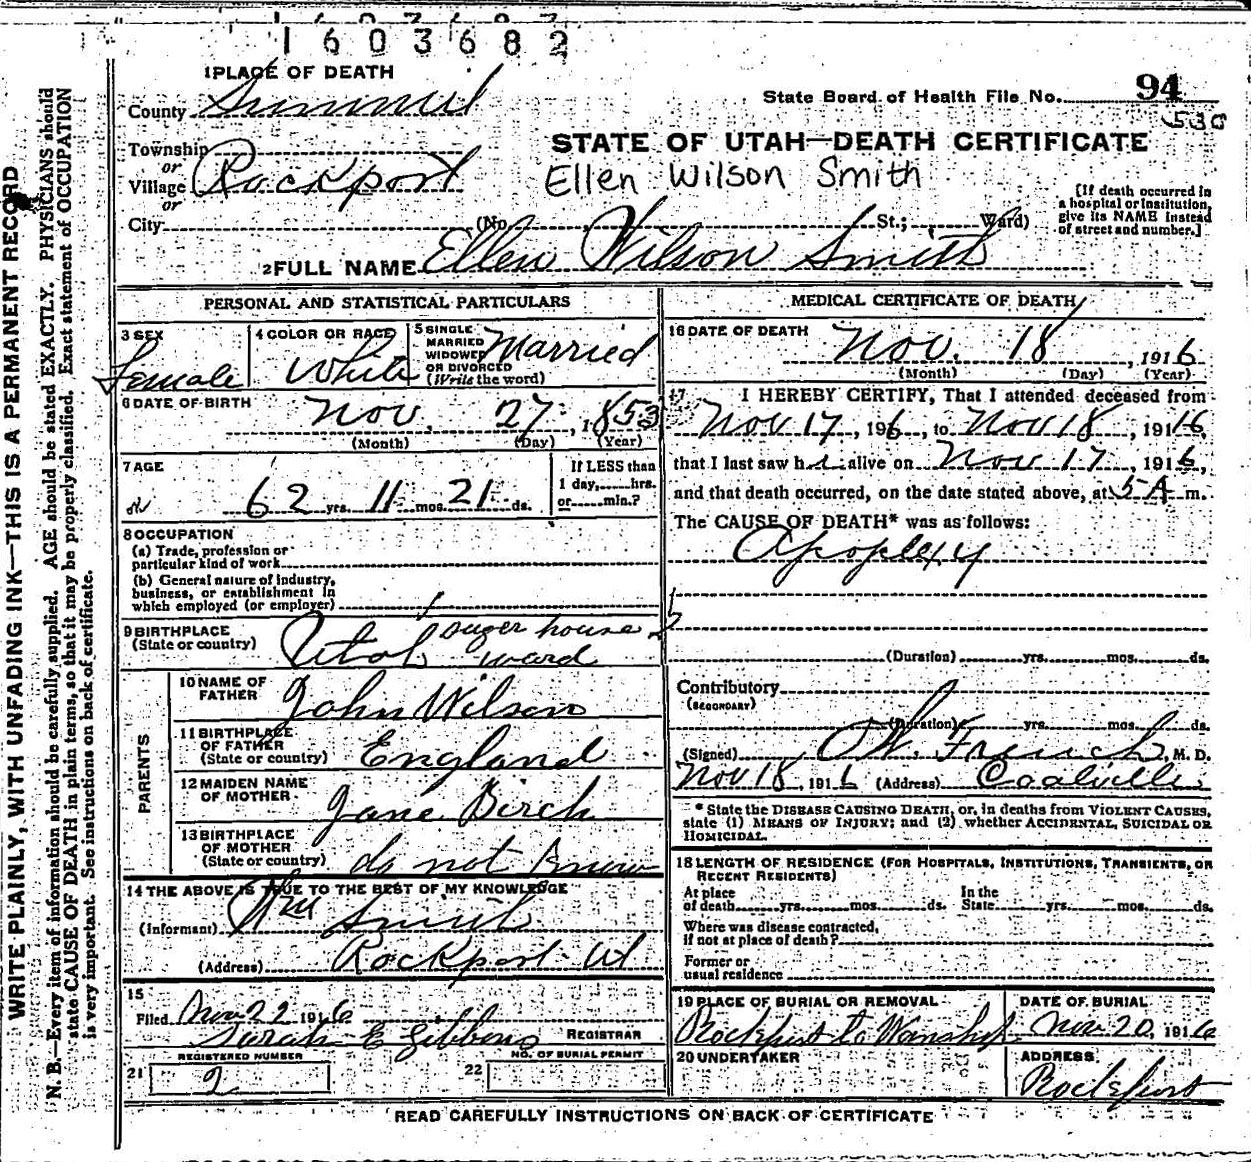 1603682
1 PLACE OF DEATH
County Summit
State Board of Health File No. 94
530
Township
or
Village Rockport
or
STATE OF UTAH—DEATH CERTIFICATE
Ellen Wilson Smith
City (No. St.; Ward)
[If death occurred in
a hospital or institution,
give its NAME instead
of street and number.]
2 FULL NAME Ellen Wilson Smith
PERSONAL AND STATISTICAL PARTICULARS
3 SEX
Female
4 COLOR OR RACE
White
5 SINGLE
MARRIED
WIDOWED
OR DIVORCED
(Write the word)
Married
6 DATE OF BIRTH
Nov. 27, 1853
(Month) (Day) (Year)
7 AGE
62 yrs. 11 mos. 21 ds.
If LESS than
1 day, hrs.
or min.?
8 OCCUPATION
(a) Trade, profession or
particular kind of work
(b) General nature of industry,
business, or establishment in
which employed (or employer)
9 BIRTHPLACE
(State or country)
Utah suger house
ward
PARENTS
10 NAME OF
FATHER
John Wilson
11 BIRTHPLACE
OF FATHER
(State or country)
England
12 MAIDEN NAME
OF MOTHER
Jane Birch
13 BIRTHPLACE
OF MOTHER
(State or country)
do not know
14 THE ABOVE IS TRUE TO THE BEST OF MY KNOWLEDGE
(Informant) Wm Smith
(Address) Rockport Ut
15
Filed Nov 22 1916
Sarah E Gibbons REGISTRAR
REGISTERED NUMBER
21 2
NO. OF BURIAL PERMIT
22
MEDICAL CERTIFICATE OF DEATH
16 DATE OF DEATH
Nov. 18, 1916
(Month) (Day) (Year)
17 I HEREBY CERTIFY, That I attended deceased from
Nov 17, 196, to Nov 18, 1916,
that I last saw her alive on Nov 17, 1916,
and that death occurred, on the date stated above, at 5 A m.
The CAUSE OF DEATH* was as follows:
Apoplexy
(Duration) yrs. mos. ds.
Contributory
(SECONDARY)
(Duration) yrs. mos. ds.
(Signed) French, M. D.
Nov 18, 1916 (Address) Coalville
* State the DISEASE CAUSING DEATH, or, in deaths from VIOLENT CAUSES,
state (1) MEANS OF INJURY; and (2) whether ACCIDENTAL, SUICIDAL OR
HOMICIDAL.
18 LENGTH OF RESIDENCE (FOR HOSPITALS, INSTITUTIONS, TRANSIENTS, OR
RECENT RESIDENTS)
At place
of death yrs. mos. ds.
In the
State yrs. mos. ds.
Where was disease contracted,
if not at place of death?
Former or
usual residence
19 PLACE OF BURIAL OR REMOVAL
Rockport to Wanship
DATE OF BURIAL
Nov 20, 1916
20 UNDERTAKER
ADDRESS
Rockport
READ CAREFULLY INSTRUCTIONS ON BACK OF CERTIFICATE
WRITE PLAINLY, WITH UNFADING INK—THIS IS A PERMANENT RECORD
N. B.—Every item of information should be carefully supplied. AGE should be stated EXACTLY. PHYSICIANS should
state CAUSE OF DEATH in plain terms, so that it may be properly classified. Exact statement of OCCUPATION
is very important. See instructions on back of certificate.